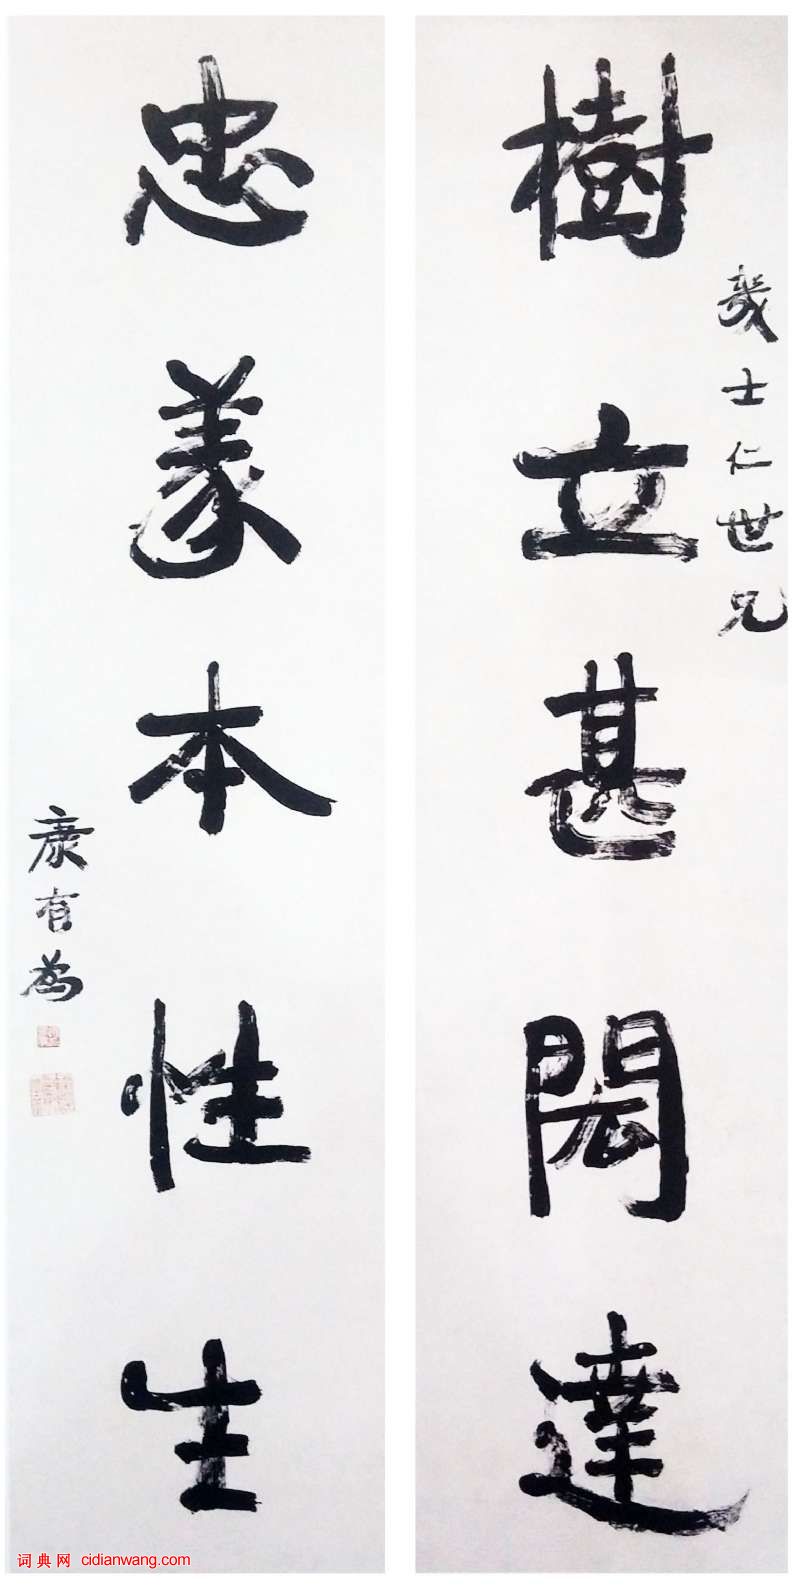 樹立甚閎達
幾士仁世兄
忠義本性生
康有為
词典网 cidianwang.com